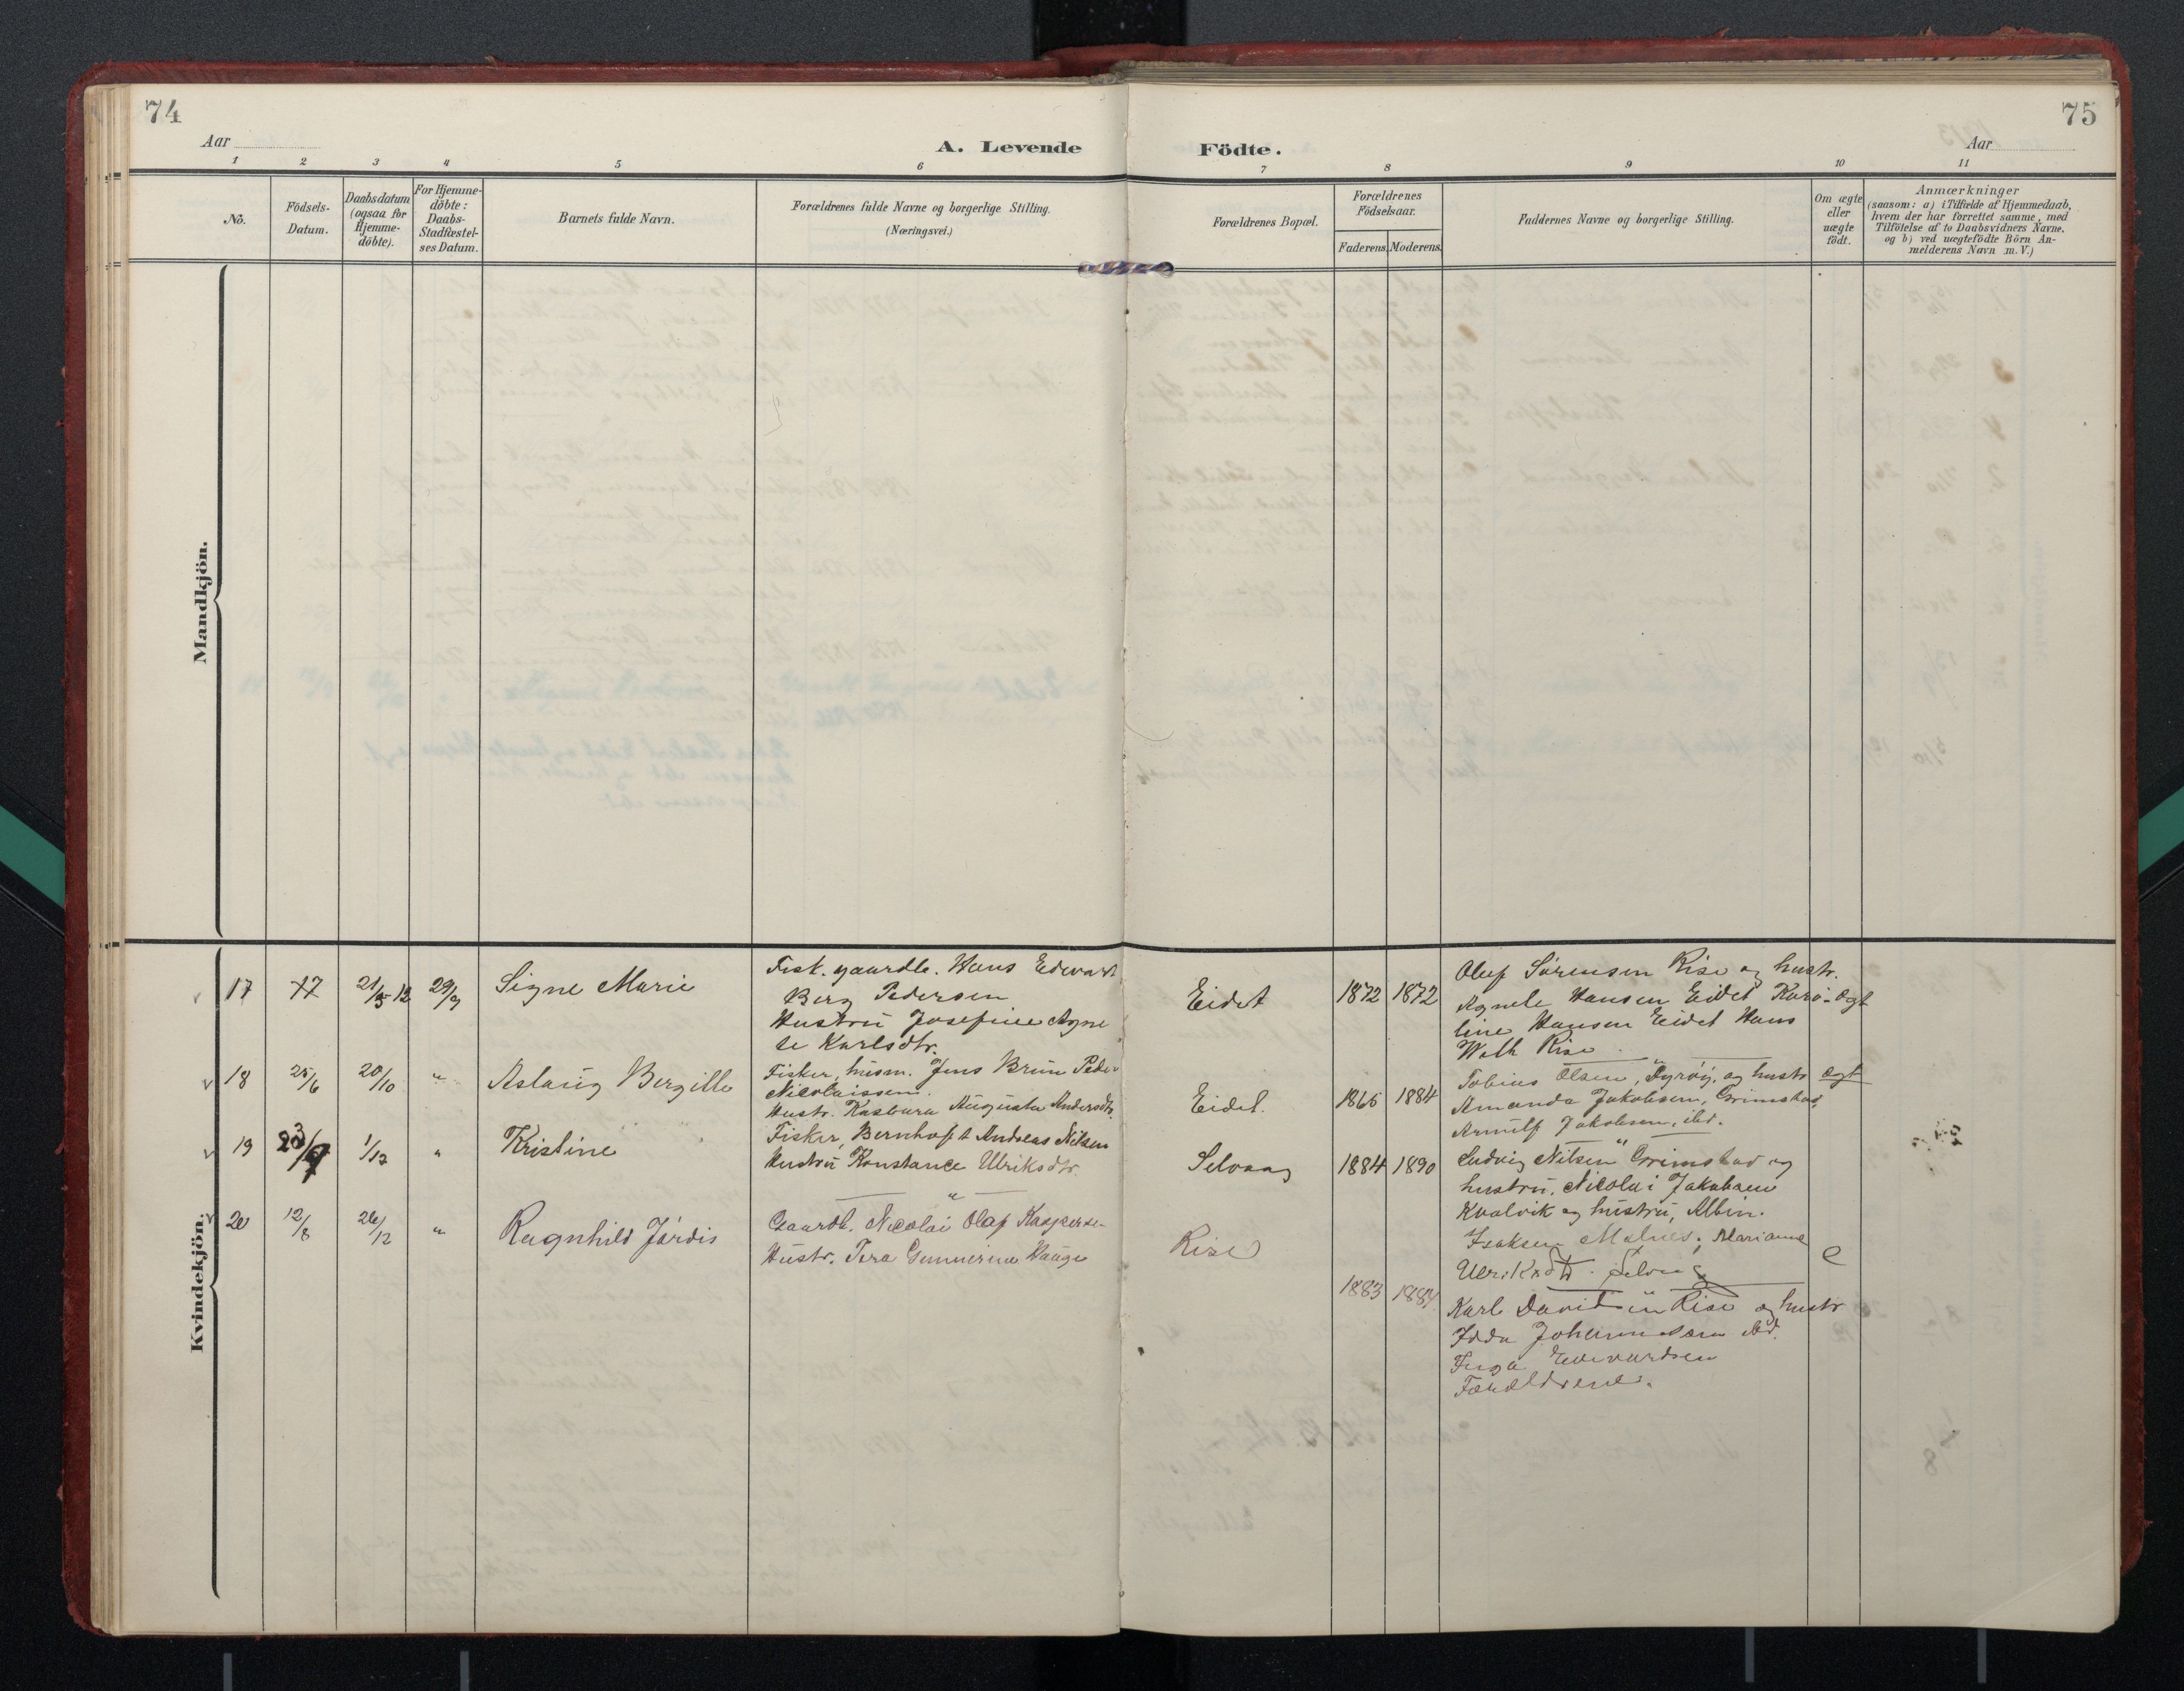 74
75
Aar
A. Levende
Födte.
Aar
1 2 3 4 5 6 7 8 9 10 11
No.
Födsels-
Datum.
Daabsdatum
(ogsaa for
Hjemme-
döbte).
For Hjemme-
döbte:
Daabs-
Stadfæstel-
ses Datum.
Barnets fulde Navn.
Forældrenes fulde Navne og borgerlige Stilling.
(Næringsvei.)
Forældrenes Bopæl.
Forældrenes
Födselsaar.
Faderens.
Moderens.
Faddernes Navne og borgerlige Stilling.
Om ægte
eller
uægte
födt.
Anmærkninger
(saasom: a) i Tilfælde af Hjemmedaab,
hvem der har forrettet samme, med
Tilföielse af to Daabsvidners Navne.
og b) ved uægtefödte Börn An-
melderens Navn m.V.)
Mandkjön.
Kvindekjön.
17
21/5 12
29/9
Signe Marie
Fisk. gaardb. Hans Edevart
Berg Pedersen
Hustru Josefine Agne
te Karlsdtr.
Eidet
1872
1872
Oluf Sörensen Rise og hustr.
Agnete Hansen Eidet Karo-
line Hansen Eidet Hans
Rise
ægt
18
25/6
20/10
"
Aslaug Bergitte
Fisker, husm. Jens Brun Peder
Nicolaissen.
Hustr. Kasbara Augusta Andersdtr.
Eidet.
1865
1884
Tobias Olsen, Dyröy, og hustr
Amanda Jakobsen, Grimstad,
Arnulf Jakobsen, ibd.
ægt
19
23/7
1/12
"
Kristine
Fisker, Bernhoft Andreas Nilsen
Hustru Konstance Ulriksdtr.
Selvaag
1884
1890
Ludvig Nilsen Grimstad og
hustru. Nicolai Jakobsen
Kvalvik og hustru, Albin.
Isaksen Malnes, Marianne
Ulriksdtr.
20
12/8
26/12
"
Ragnhild Jördis
"
Gaardb. Nicolai Olaf Kaspersen
Hustr. Tora Gunnerina Hauge
Rise
1883
1884
e
Karl Rise og hustr
Idda Johannesen ibd.
Inga Edevardsen
Forældrene.